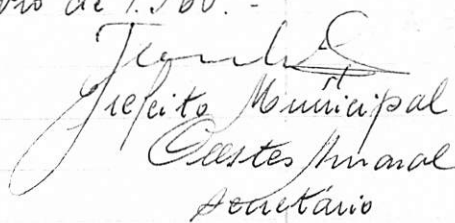 de 1.960. -
Prefeito Municipal
Orestes Amaral
secretário